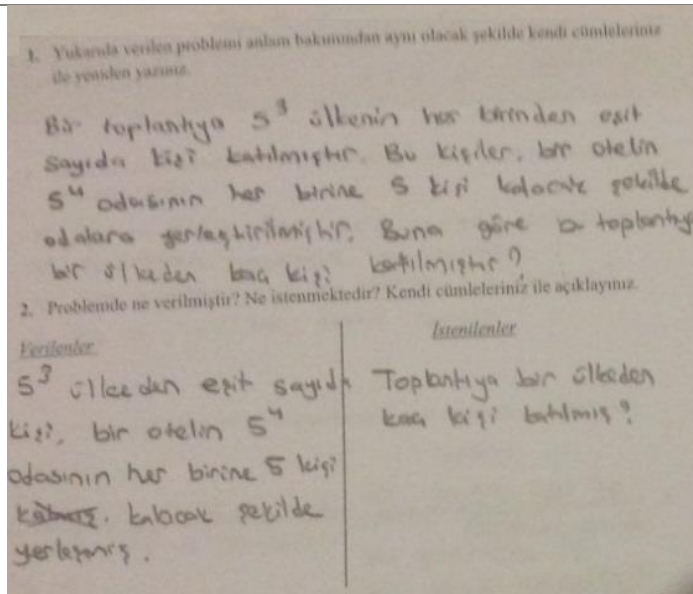 1. Yukarıda verilen problemi anlam bakımından aynı olacak şekilde kendi cümleleriniz
ile yeniden yazınız.
Bir toplantıya 5³ ülkenin her birinden eşit
sayıda kişi katılmıştır. Bu kişiler, bir otelin
5⁴ odasının her birine 5 kişi kalacak şekilde
odalara yerleştirilmiştir. Buna göre bu toplantıya
bir ülkeden kaç kişi katılmıştır?
2. Problemde ne verilmiştir? Ne istenmektedir? Kendi cümleleriniz ile açıklayınız.
Verilenler
5³ ülkeden eşit sayıda
kişi, bir otelin 5⁴
odasının her birine 5 kişi
kalacak şekilde
yerleşmiş.
İstenilenler
Toplantıya bir ülkeden
kaç kişi katılmış?